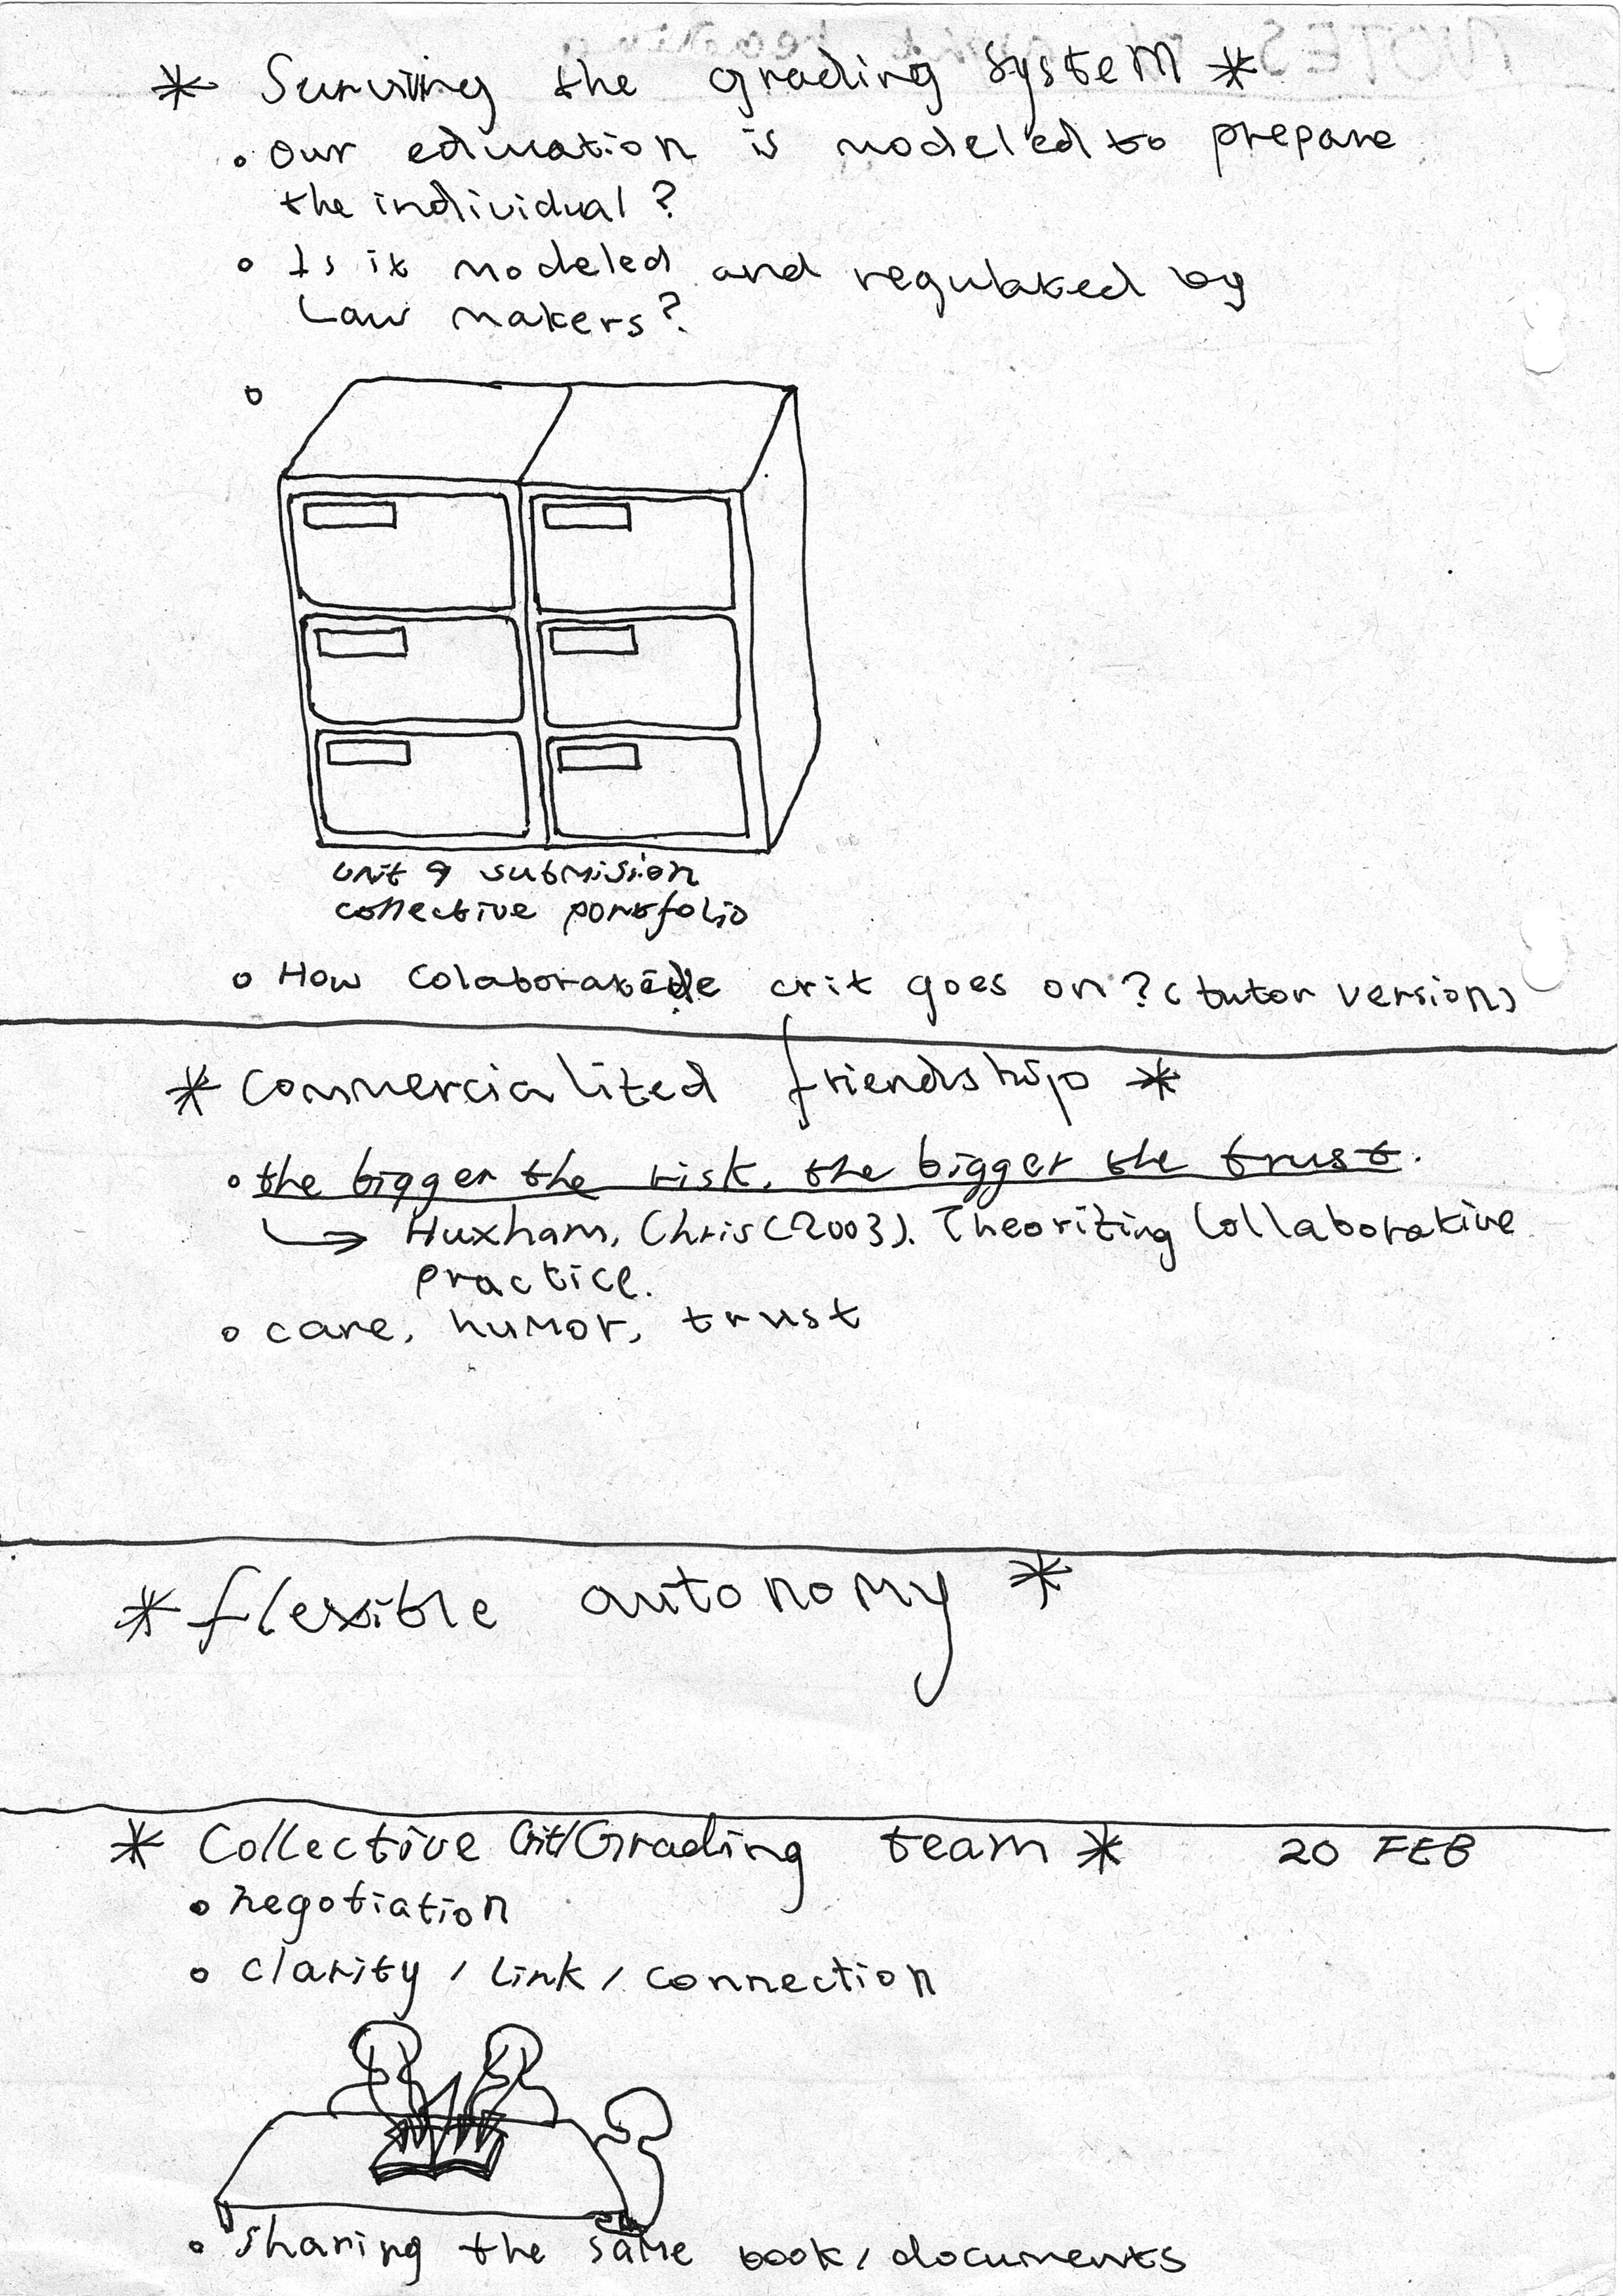 * Surviving the grading system *
• our education is modeled to prepare
the individual?
• Is it modeled and regulated by
Law makers?
•
unit 9 submision
collective portfolio
• How colaborative crit goes on? (tutor version)
* commercialized friendship *
• the bigger the risk, the bigger the trust.
↳ Huxham, Chris (2003). Theorizing Collaborative
practice.
• care, humor, trust
* flexible autonomy *
* Collective Crit/Grading team * 20 FEB
• negotiation
• clarity / Link / connection
• sharing the same book / documents